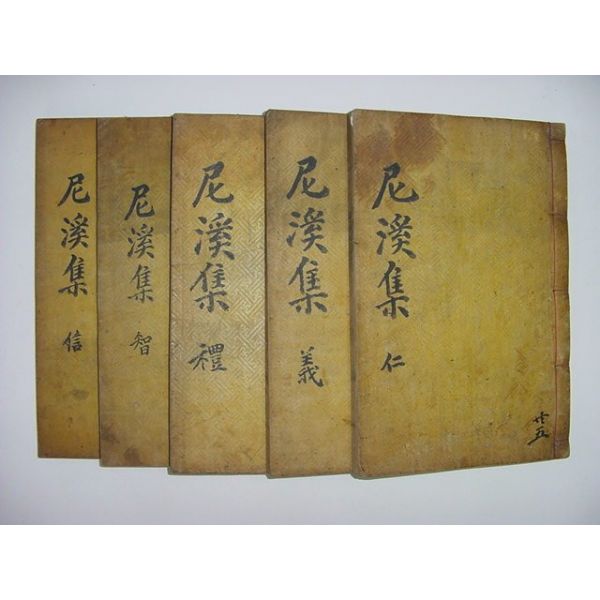 尼溪集 仁
共五
尼溪集 義
尼溪集 禮
尼溪集 智
尼溪集 信